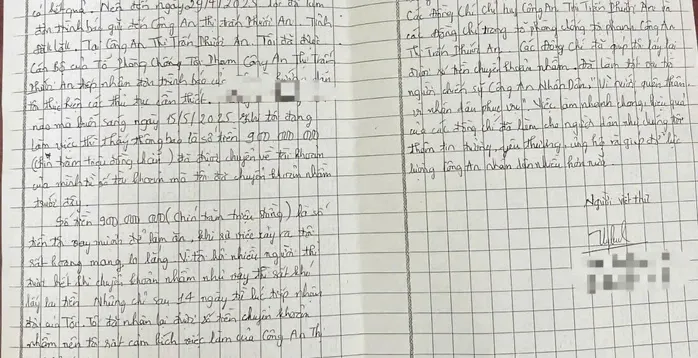 có kết quả. Nên đến ngày 29/4/2025 Tôi đã làm
đơn trình báo gửi đến Công An Thị trấn Phước An. Tỉnh
Đắk Lắk. Tại Công An Thị Trấn Phước An. Tôi đã được
Cán Bộ của Tổ Phòng Chống Tội Phạm Công An Thị Trấn
Phước An tiếp nhận đơn trình báo của
tôi thực hiện các thủ tục cần thiết.
nào mà buổi sáng ngày 15/5/2025 khi tôi đang
làm việc thì Thấy thông báo là số tiền 900 000 000
(chín trăm triệu đồng chẵn) đã được chuyển về tài khoản
của mình từ số tài khoản mà tôi đã chuyển khoản nhầm
trước đây.
Số tiền 900 000 000 (Chín trăm triệu đồng) là số
tiền tôi vay mình để làm ăn, khi sự việc xảy ra tôi
rất hoang mang, lo lắng. Vì tôi hỏi nhiều người thì
được biết khi chuyển khoản nhầm như vậy thì rất khó
lấy lại tiền. Nhưng chỉ sau 14 ngày từ lúc tiếp nhận
đơn của Tôi. Tôi đã nhận lại được số tiền chuyển khoản
nhầm nên tôi rất cảm kích việc làm của Công An Thị
Các đồng Chí Chỉ huy Công An Thị Trấn Phước An và
các đồng chí trong tổ phòng chống tội phạm Công An
Thị Trấn Phước An. Các đồng chí đã giúp tôi lấy lại
được số tiền chuyển khoản nhầm, đã làm tốt vai trò
người chiến sỹ Công An Nhân Dân. "Vì nước quên thân,
vì nhân dân phục vụ" Việc làm nhanh chóng, hiệu quả
của các đồng chí đã làm cho người dân như chúng tôi
thêm tin tưởng, yêu thương, ủng hộ và giúp đỡ lực
lượng Công An nhân dân nhiều hơn nữa.
Người viết thư